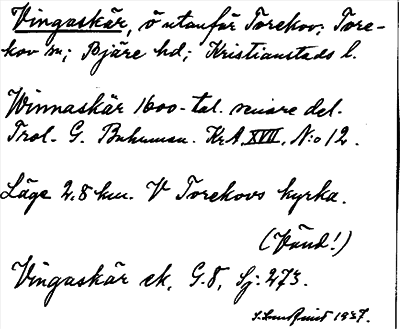 Vingaskär, ö utanför Torekov; Tore-
kov sn; Bjäre hd; Kristianstads l.
Winnaskär 1600-tal. senare del.
Trol. G. Buhrman. KrA XVII, N:o 12.
Läge 2.8 km. V Torekovs kyrka.
(Vänd!)
Vingaskär ek. G.8, Sj: 273.
1937.